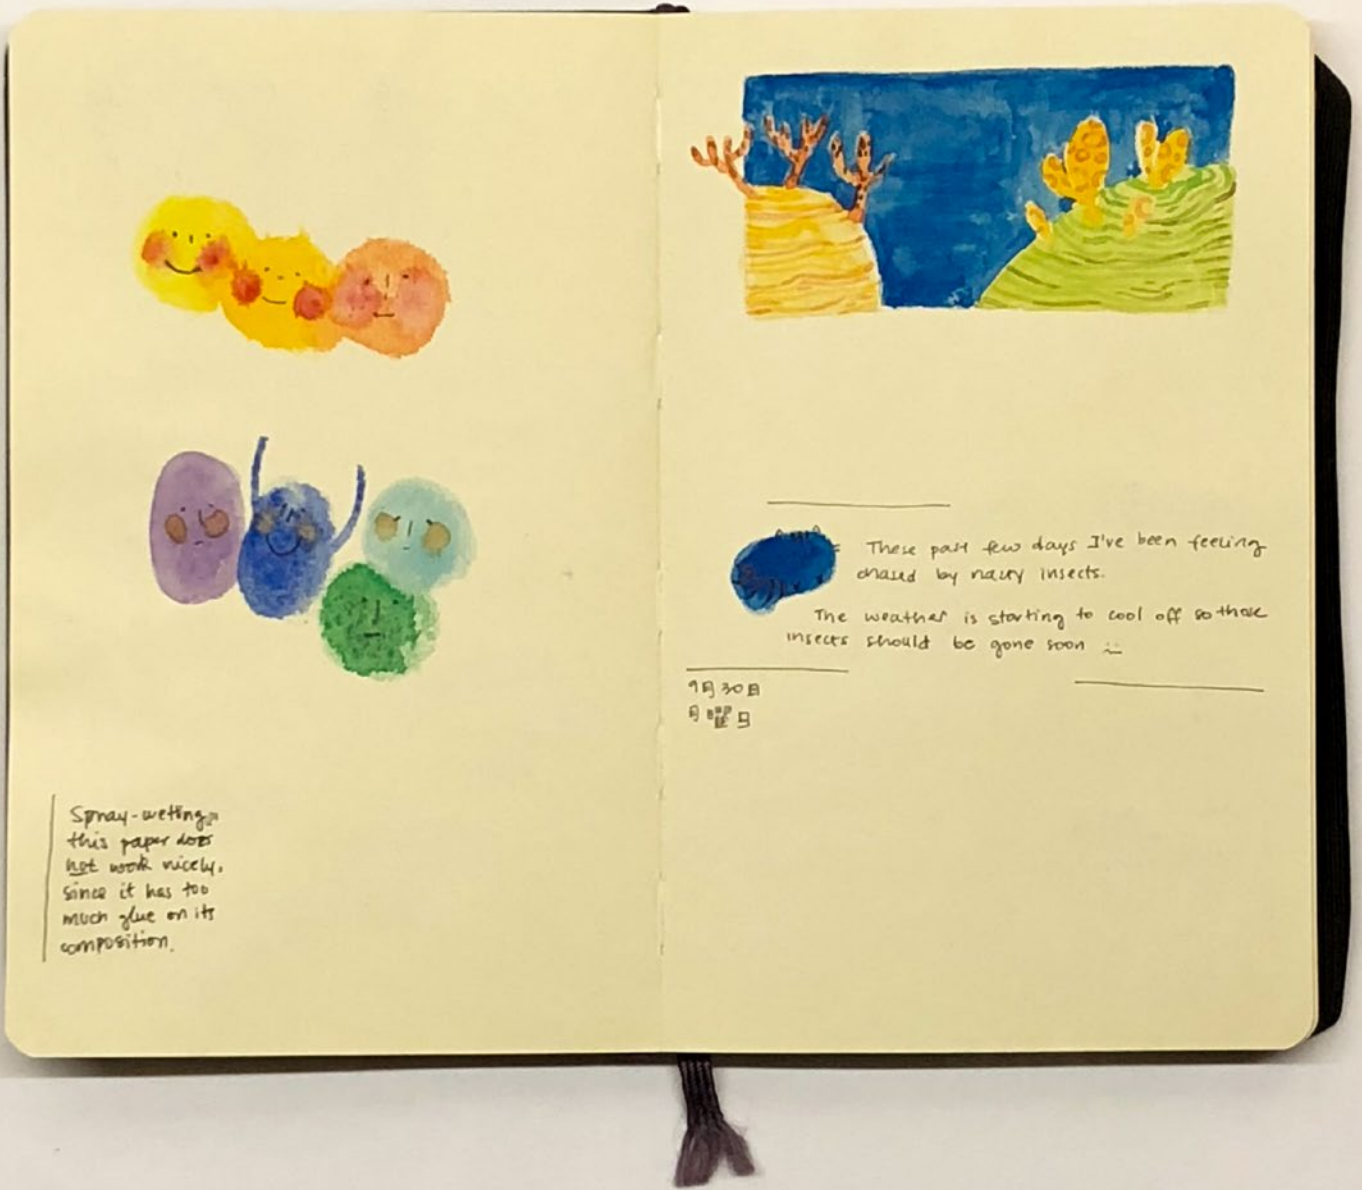 Spray-wetting
this paper does
not work nicely,
since it has too
much glue on its
composition.
These past few days I've been feeling
chased by nasty insects.
The weather is starting to cool off so those
insects should be gone soon
9月30日
月曜日